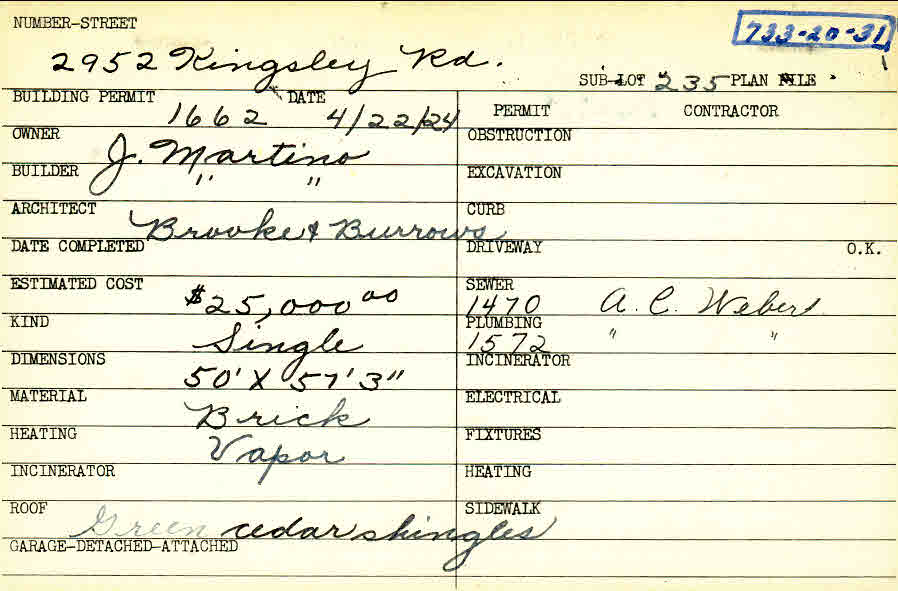 NUMBER-STREET
733-20-31
2952 Kingsley Rd.
SUB-LOT 235 PLAN FILE
BUILDING PERMIT 1662 DATE 4/22/24
PERMIT CONTRACTOR
OWNER J. Martino
OBSTRUCTION
BUILDER " "
EXCAVATION
ARCHITECT Brooke & Burrows
CURB
DATE COMPLETED
DRIVEWAY O.K.
ESTIMATED COST $25,000 00
SEWER 1470 A. C. Webers
KIND Single
PLUMBING 1572 " "
DIMENSIONS 50' X 57' 3"
INCINERATOR
MATERIAL Brick
ELECTRICAL
HEATING Vapor
FIXTURES
INCINERATOR
HEATING
ROOF Green cedar shingles
SIDEWALK
GARAGE-DETACHED-ATTACHED